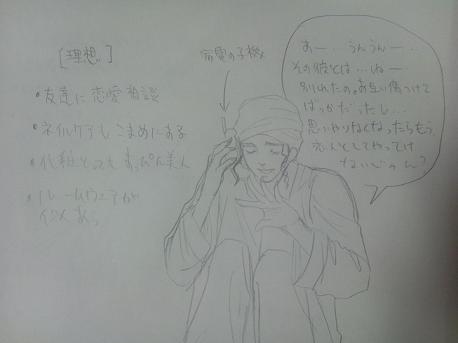 [理想]
・友達に恋愛相談
・ネイルケアもこまめにする
・化粧とってもすっぴん美人
・ルームウェアが
似合う
家電の子機
あー…うんうんー…
その彼とは…ねー
別れたの。お互い傷つけて
ばっかだったし…
思いやりなくなったらもう
恋人としてやってけ
ないじゃん?